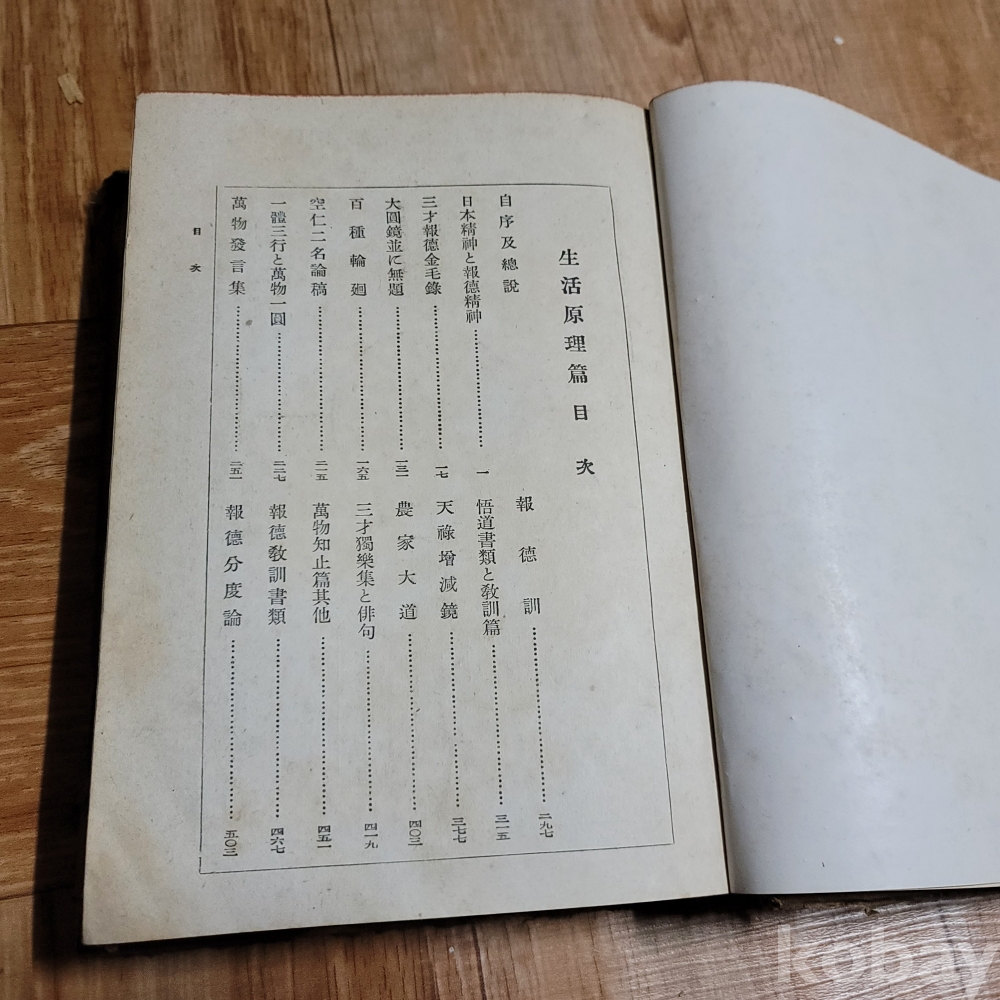 生活原理篇目次
自序及總說
日本精神と報德精神……一
三才報德金毛錄……一七
大圓鏡並に無題……一三一
百種輪廻……一六五
空仁二名論稿……二一五
一體三行と萬物一圓……二二七
萬物發言集……二五一
報德訓……二九七
悟道書類と敎訓篇……三一五
天祿增減鏡……三七七
農家大道……四〇三
三才獨樂集と俳句……四一九
萬物知止篇其他……四五一
報德敎訓書類……四六七
報德分度論……五〇三
目次
kobay